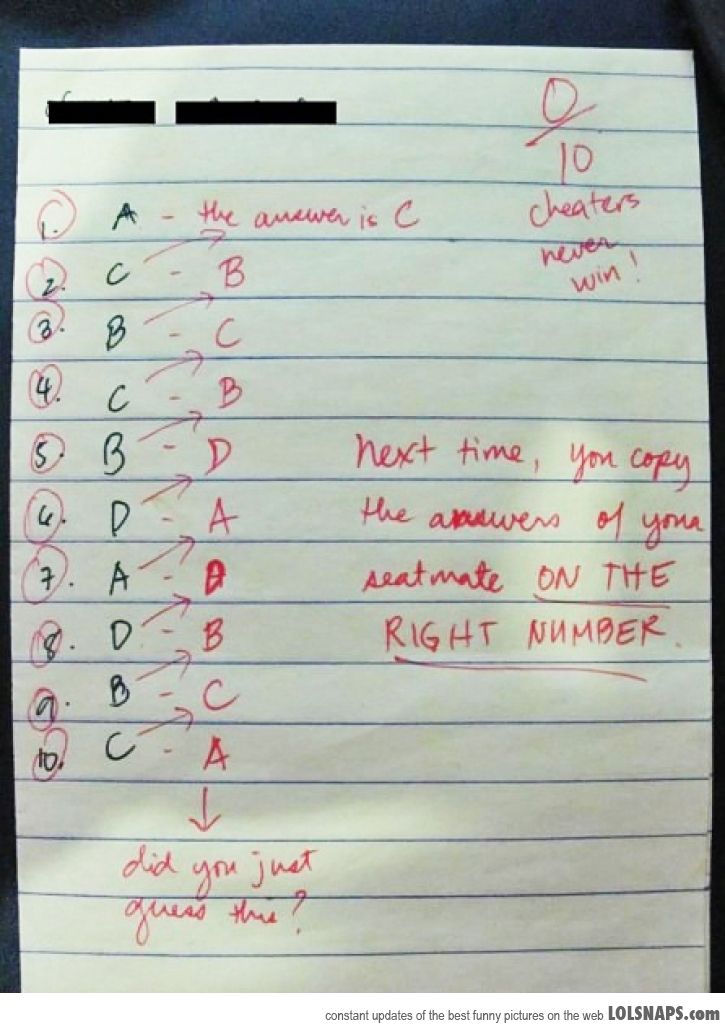 0/10
cheaters
never
win!
1. A - the answer is C
2. C - B
3. B - C
4. C - B
5. B - D
6. D - A
7. A - D
8. D - B
9. B - C
10. C - A
next time, you copy
the answers of your
seatmate ON THE
RIGHT NUMBER.
did you just
guess this?
constant updates of the best funny pictures on the web LOLSNAPS.com